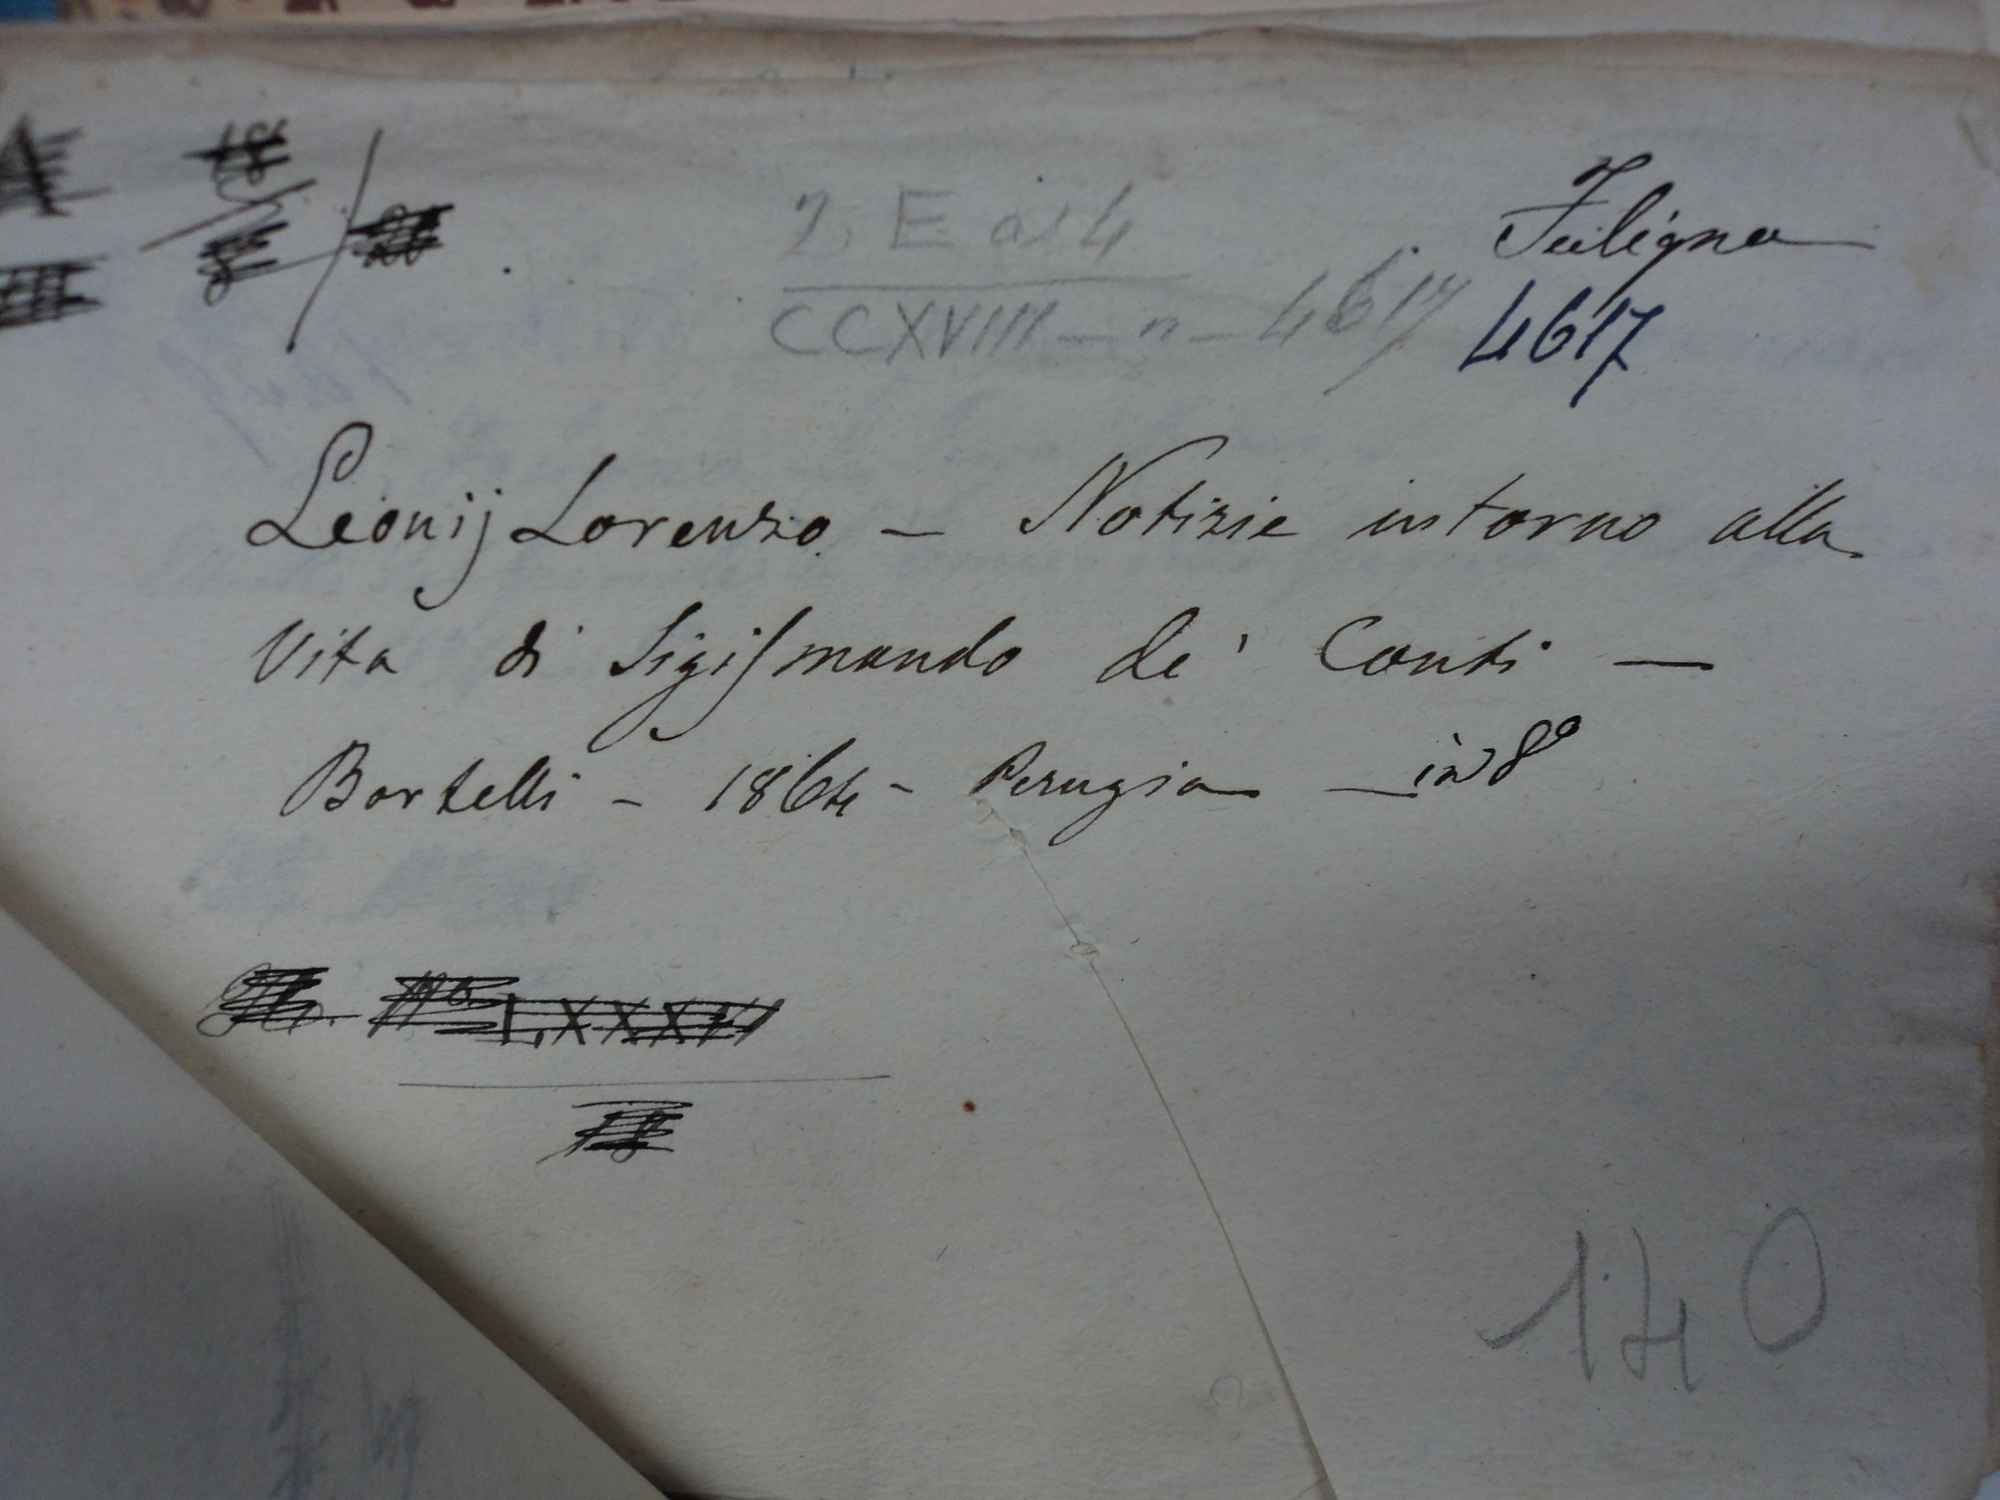 Fuligno
4617
CCXVIII - n - 4617
Leonij Lorenzo - Notizie intorno alla
Vita di Sigismondo de' Conti -
Bartelli - 1864 - Perugia - in 8º
LXXXVI
140